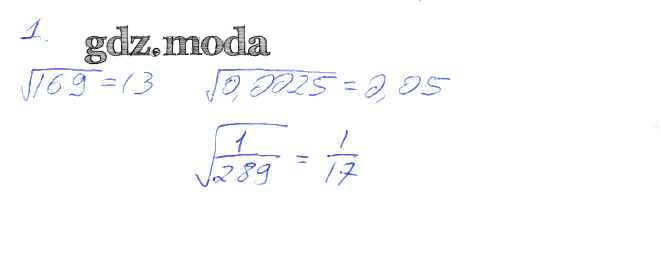 1.
gdz.moda
√169 = 13 √0,0025 = 0,05
√(1/289) = 1/17